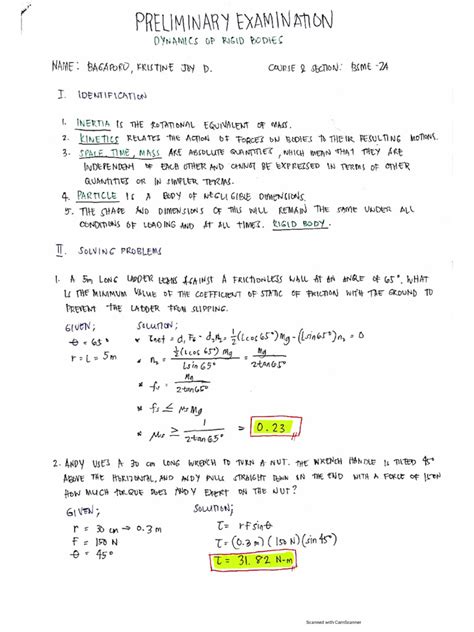 PRELIMINARY EXAMINATION
DYNAMICS OF RIGID BODIES
NAME: BAGAPORO, KRISTINE JOY D. COURSE & SECTION: BSME-2A
I. IDENTIFICATION
1. INERTIA IS THE ROTATIONAL EQUIVALENT OF MASS.
2. KINETICS RELATES THE ACTION OF FORCES ON BODIES TO THEIR RESULTING MOTIONS.
3. SPACE, TIME, MASS ARE ABSOLUTE QUANTITIES, WHICH MEAN THAT THEY ARE
INDEPENDENT OF EACH OTHER AND CANNOT BE EXPRESSED IN TERMS OF OTHER
QUANTITIES OR IN SIMPLER TERMS.
4. PARTICLE IS A BODY OF NEGLIGIBLE DIMENSIONS.
5. THE SHAPE AND DIMENSIONS OF THIS WILL REMAIN THE SAME UNDER ALL
CONDITIONS OF LOADING AND AT ALL TIMES. RIGID BODY.
II. SOLVING PROBLEMS
1. A 5m LONG LADDER LEANS AGAINST A FRICTIONLESS WALL AT AN ANGLE OF 65°. WHAT
IS THE MINIMUM VALUE OF THE COEFFICIENT OF STATIC OF FRICTION WITH THE GROUND TO
PREVENT THE LADDER FROM SLIPPING.
GIVEN; SOLUTION;
θ = 65°
r = L = 5m
* τnet = d, FG - d2n2 = 1/2(Lcos65°)Mg - (Lsin65°)n2 = 0
* n2 = 1/2(Lcos65°)Mg / Lsin65° = Mg / 2tan65°
* fs = Mg / 2tan65°
* fs ≤ μsMg
* μs ≥ 1 / 2tan65° = 0.23
2. ANDY USES A 30 cm LONG WRENCH TO TURN A NUT. THE WRENCH HANDLE IS TILTED 45°
ABOVE THE HORIZONTAL, AND ANDY PULLS STRAIGHT DOWN ON THE END WITH A FORCE OF
HOW MUCH TORQUE DOES ANDY EXERT ON THE NUT?
GIVEN; SOLUTION;
r = 30 cm → 0.3 m
f = 150 N
θ = 45°
τ = rFsinθ
τ = (0.3 m)(150 N)(sin 45°)
τ = 31.82 N-m
Scanned with CamScanner